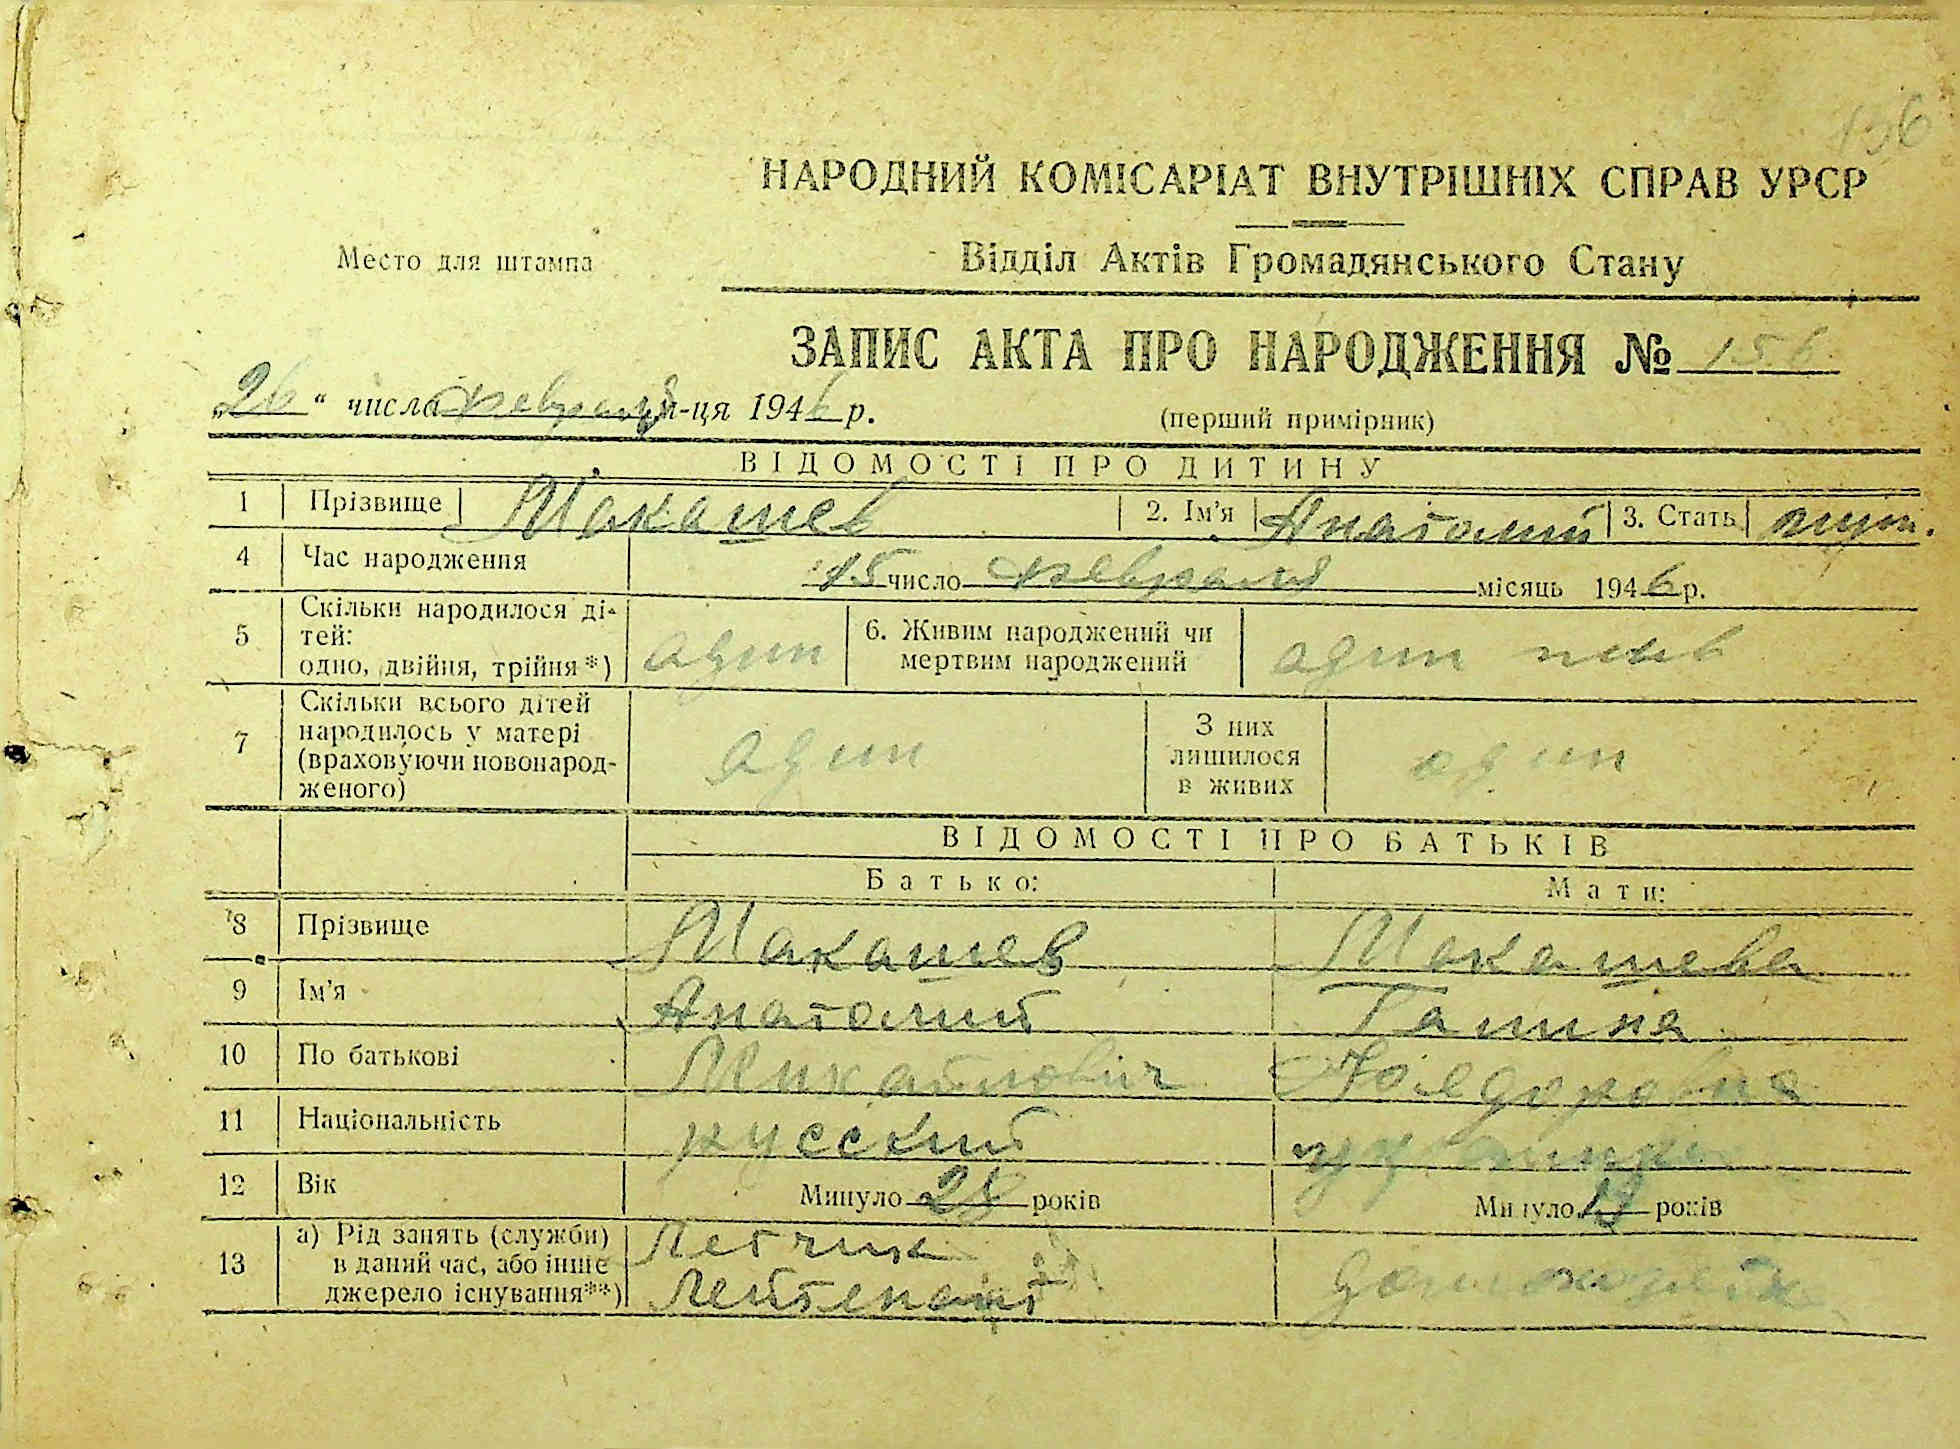 156
НАРОДНИЙ КОМІСАРІАТ ВНУТРІШНІХ СПРАВ УРСР
Место для штампа
Відділ Актів Громадянського Стану
ЗАПИС АКТА ПРО НАРОДЖЕННЯ № 156
„26“ числа февраля м-ця 1946 р.
(перший примірник)
ВІДОМОСТІ ПРО ДИТИНУ
1 Прізвище Макашев 2. Ім'я Анатолий 3. Стать муж.
4 Час народження 15 число февраля місяць 1946 р.
5 Скільки народилося ді-
тей:
одно, двійня, трійня*) один
6. Живим народжений чи
мертвим народжений один жив
7 Скільки всього дітей
народилось у матері
(враховуючи новонарод-
женого) один
З них
лишилося
в живих один
ВІДОМОСТІ ПРО БАТЬКІВ
Батько: Мати:
8 Прізвище Макашев Макашева
9 Ім'я Анатолий Галина
10 По батькові Михайлович Федоровна
11 Національність русский украинка
12 Вік Минуло 28 років Минуло 19 років
13 а) Рід занять (служби)
в даний час, або інше
джерело існування**)
Летчик
Лейтенант
домохозяйка